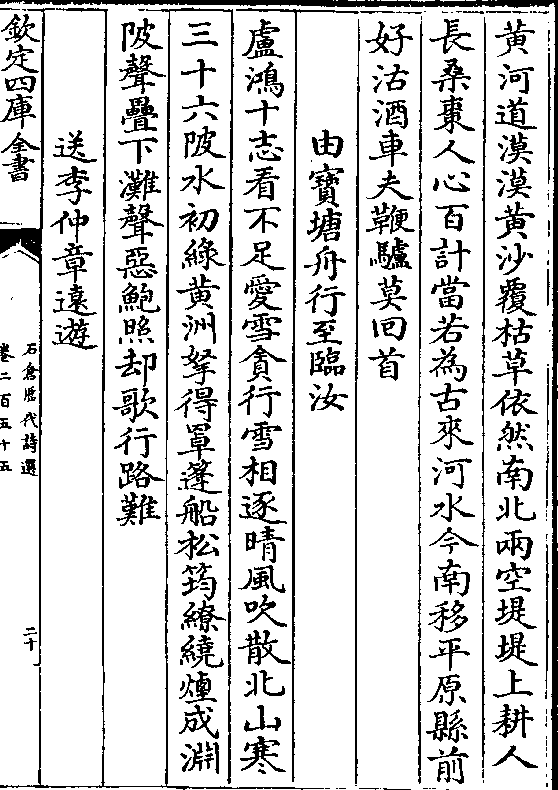 黄河道漠漠黄沙覆枯草依然南北兩空堤堤上耕人
長桑棗人心百計當若為古來河水今南移平原縣前
好沽酒車夫鞭驢莫回首
由寶塘舟行至臨汝
盧鴻十志看不足愛雪貪行雪相逐晴風吹散北山寒
三十六陂水初綠黄洲拏得罩篷船松筠繚繞煙成淵
陂聲疊下灘聲惡鮑照却歌行路難
送李仲章遠遊
欽定四庫全書
石倉歷代詩選
卷二百五十五
二十